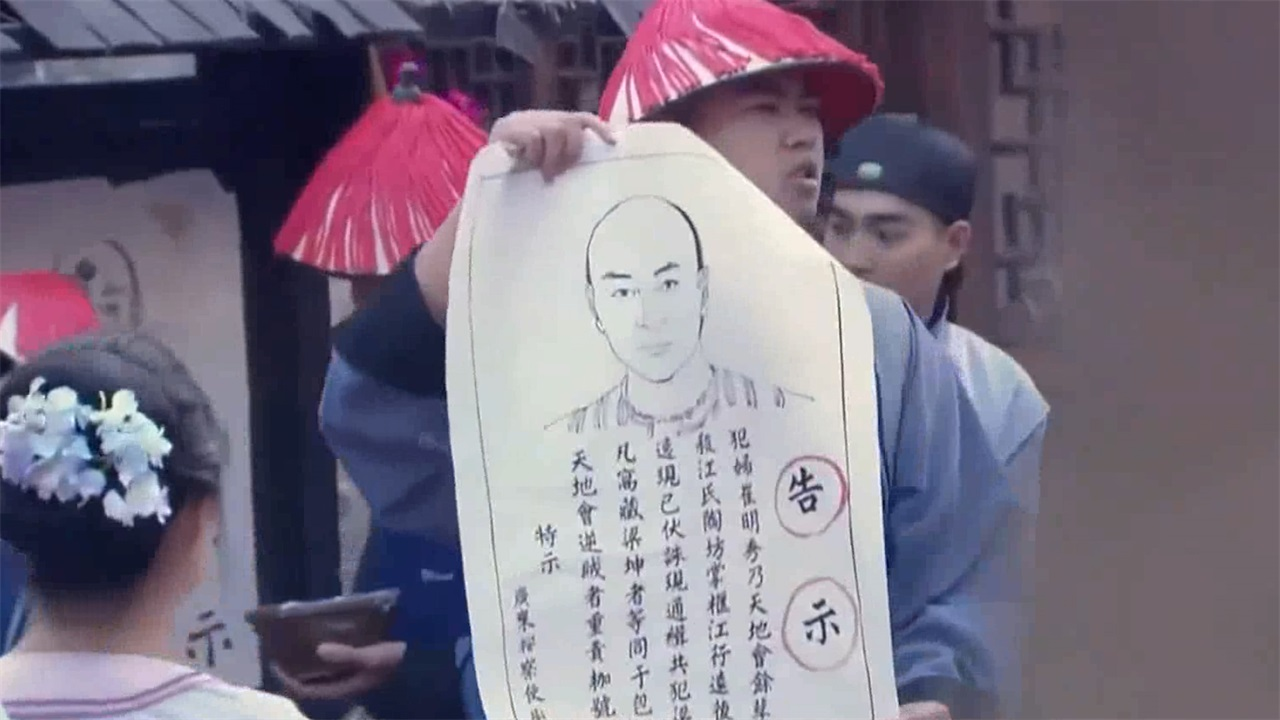 告示
犯婦崔明秀乃天地會餘孽
殺江氏陶坊掌櫃江行遠後
遠現已伏誅現通緝共犯梁
凡窩藏梁坤者等同于包
天地會逆賊者重責枷號
特示
廣東按察使
示